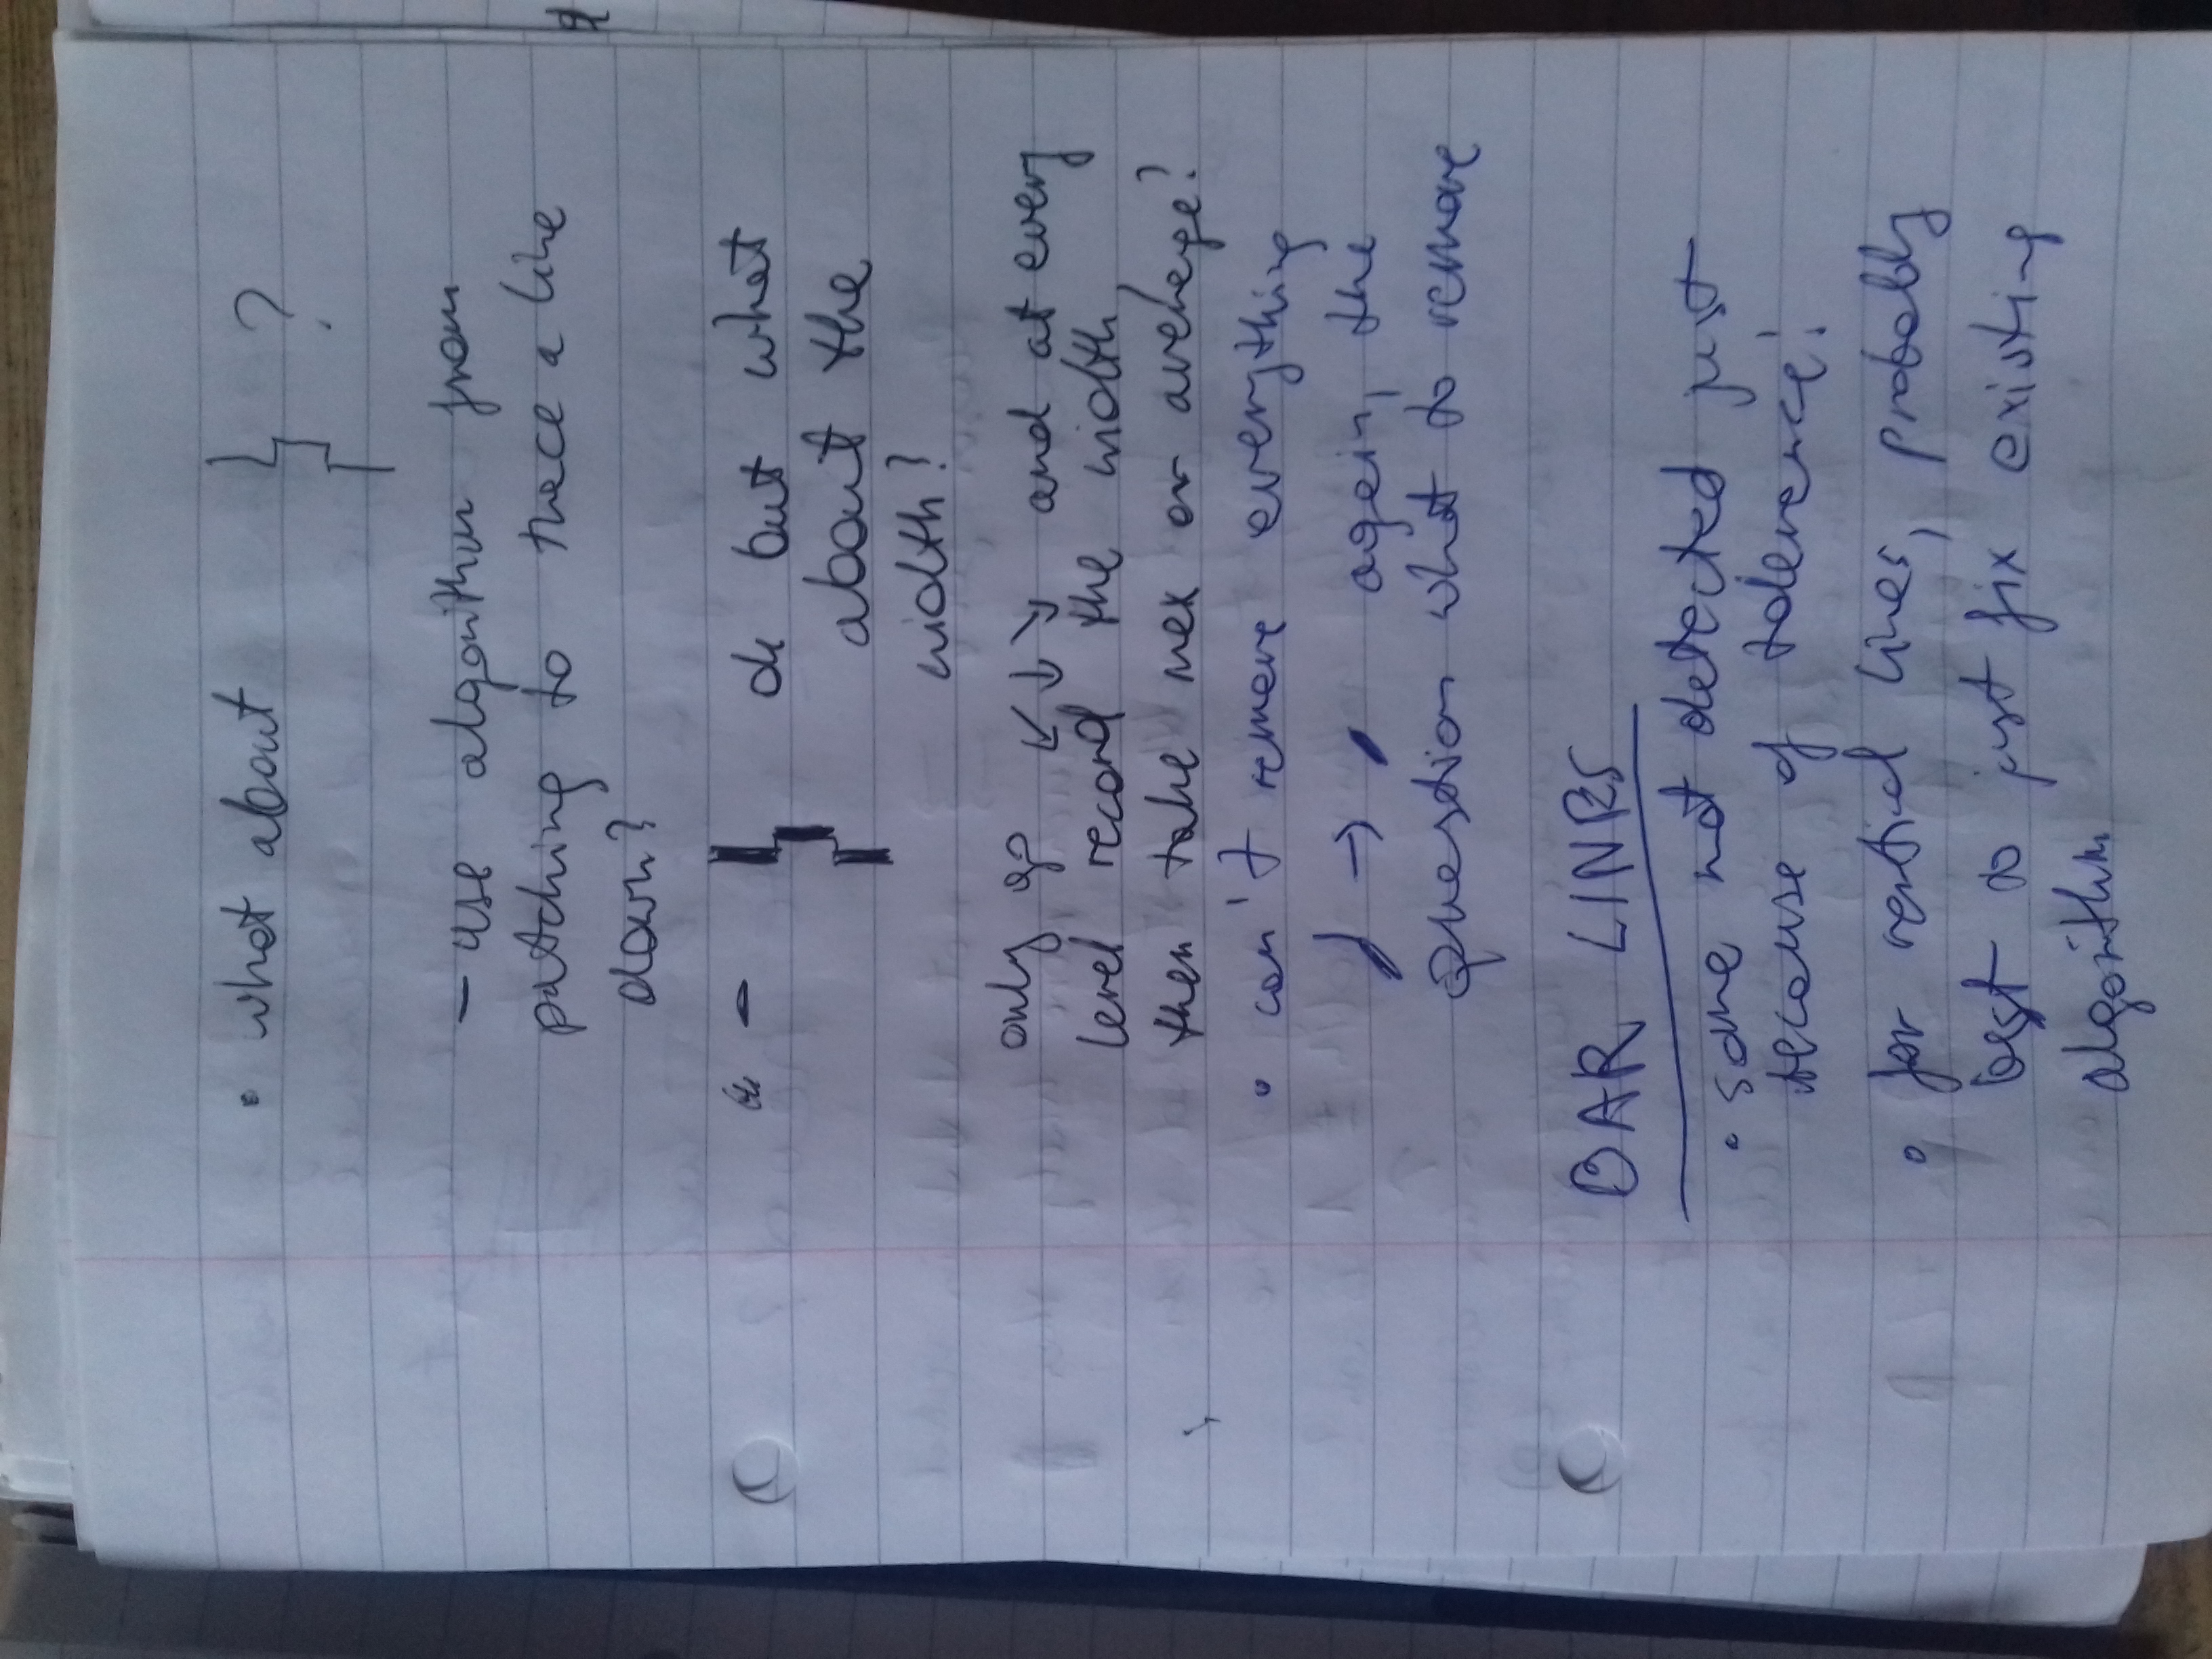 • what about ?
- use algorithm from
patching to trace a line
down?
- ok but what
about the
width?
only go ↙ ↓ ↘ and at every
level record the width,
then take max or average?
• can't remove everything
→ again, the
question what to remove
BAR LINES
• some not detected just
because of tolerance!
• for vertical lines, probably
best to just fix existing
algorithm